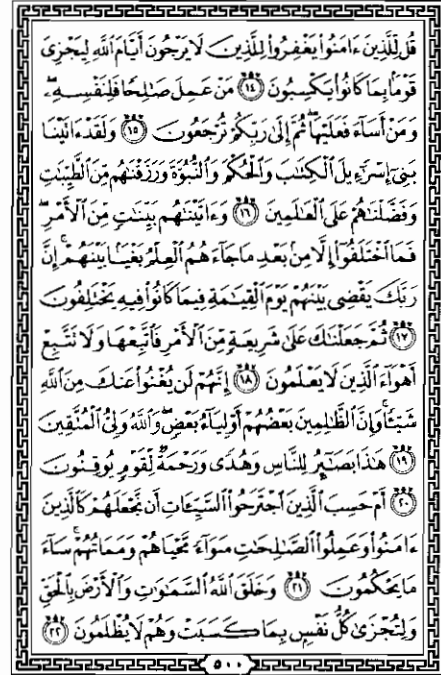 قُل لِّلَّذِينَ ءَامَنُوا۟ يَغْفِرُوا۟ لِلَّذِينَ لَا يَرْجُونَ أَيَّامَ ٱللَّهِ لِيَجْزِىَ
قَوْمًۢا بِمَا كَانُوا۟ يَكْسِبُونَ ١٤ مَنْ عَمِلَ صَـٰلِحًا فَلِنَفْسِهِۦ ۖ
وَمَنْ أَسَآءَ فَعَلَيْهَا ۖ ثُمَّ إِلَىٰ رَبِّكُمْ تُرْجَعُونَ ١٥ وَلَقَدْ ءَاتَيْنَا
بَنِىٓ إِسْرَٰٓءِيلَ ٱلْكِتَـٰبَ وَٱلْحُكْمَ وَٱلنُّبُوَّةَ وَرَزَقْنَـٰهُم مِّنَ ٱلطَّيِّبَـٰتِ
وَفَضَّلْنَـٰهُمْ عَلَى ٱلْعَـٰلَمِينَ ١٦ وَءَاتَيْنَـٰهُم بَيِّنَـٰتٍ مِّنَ ٱلْأَمْرِ ۖ
فَمَا ٱخْتَلَفُوٓا۟ إِلَّا مِنۢ بَعْدِ مَا جَآءَهُمُ ٱلْعِلْمُ بَغْيًۢا بَيْنَهُمْ ۚ إِنَّ
رَبَّكَ يَقْضِى بَيْنَهُمْ يَوْمَ ٱلْقِيَـٰمَةِ فِيمَا كَانُوا۟ فِيهِ يَخْتَلِفُونَ
١٧ ثُمَّ جَعَلْنَـٰكَ عَلَىٰ شَرِيعَةٍ مِّنَ ٱلْأَمْرِ فَٱتَّبِعْهَا وَلَا تَتَّبِعْ
أَهْوَآءَ ٱلَّذِينَ لَا يَعْلَمُونَ ١٨ إِنَّهُمْ لَن يُغْنُوا۟ عَنكَ مِنَ ٱللَّهِ
شَيْـًٔا ۚ وَإِنَّ ٱلظَّـٰلِمِينَ بَعْضُهُمْ أَوْلِيَآءُ بَعْضٍ ۖ وَٱللَّهُ وَلِىُّ ٱلْمُتَّقِينَ
١٩ هَـٰذَا بَصَـٰٓئِرُ لِلنَّاسِ وَهُدًى وَرَحْمَةٌ لِّقَوْمٍ يُوقِنُونَ
٢٠ أَمْ حَسِبَ ٱلَّذِينَ ٱجْتَرَحُوا۟ ٱلسَّيِّـَٔاتِ أَن نَّجْعَلَهُمْ كَٱلَّذِينَ
ءَامَنُوا۟ وَعَمِلُوا۟ ٱلصَّـٰلِحَـٰتِ سَوَآءً مَّحْيَاهُمْ وَمَمَاتُهُمْ ۚ سَآءَ
مَا يَحْكُمُونَ ٢١ وَخَلَقَ ٱللَّهُ ٱلسَّمَـٰوَٰتِ وَٱلْأَرْضَ بِٱلْحَقِّ
وَلِتُجْزَىٰ كُلُّ نَفْسٍۭ بِمَا كَسَبَتْ وَهُمْ لَا يُظْلَمُونَ ٢٢
٥٠٠